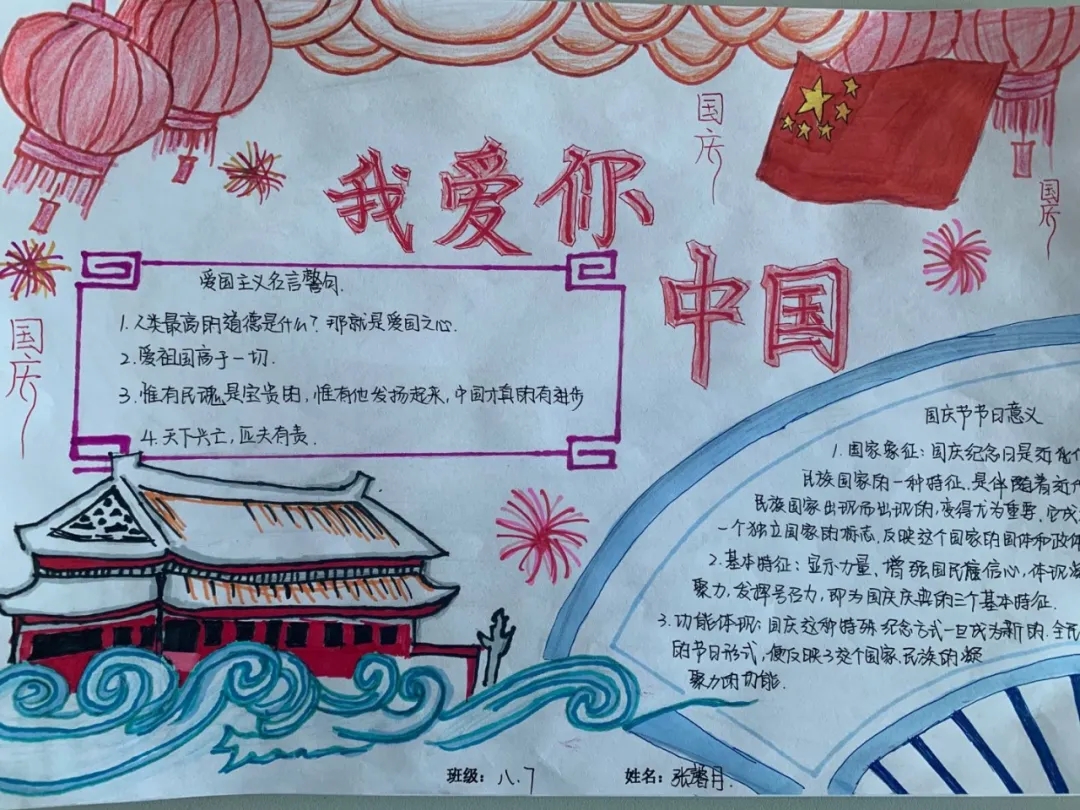 国庆
国庆
国庆
我爱你
中国
爱国主义名言警句.
1.人类最高的道德是什么?那就是爱国之心.
2.爱祖国高于一切.
3.惟有民魂是宝贵的,惟有他发扬起来,中国才真的有进步
4.天下兴亡,匹夫有责.
国庆节节日意义
1.国家象征:国庆纪念日是近代
民族国家的一种特征.是伴随着近
民族国家出现而出现的,变得尤为重要.它成
一个独立国家的标志,反映这个国家的国体和政体
2.基本特征:显示力量、增强国民信心,体现凝
聚力,发挥号召力,即为国庆庆典的三个基本特征.
3.功能体现:国庆这种特殊纪念方式一旦成为新的.全民
的节日形式,便反映了这个国家、民族的凝
聚力的功能.
班级:八.7
姓名:张馨月